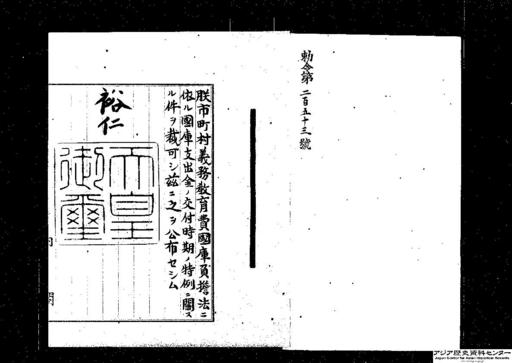 勅令第二百五十三號
朕市町村義務教育費國庫負擔法ニ
依ル國庫支出金ノ交付時期ノ特例ニ關ス
ル件ヲ裁可シ茲ニ之ヲ公布セシム
裕仁
天皇御璽
アジア歴史資料センター
Japan Center for Asian Historical Records